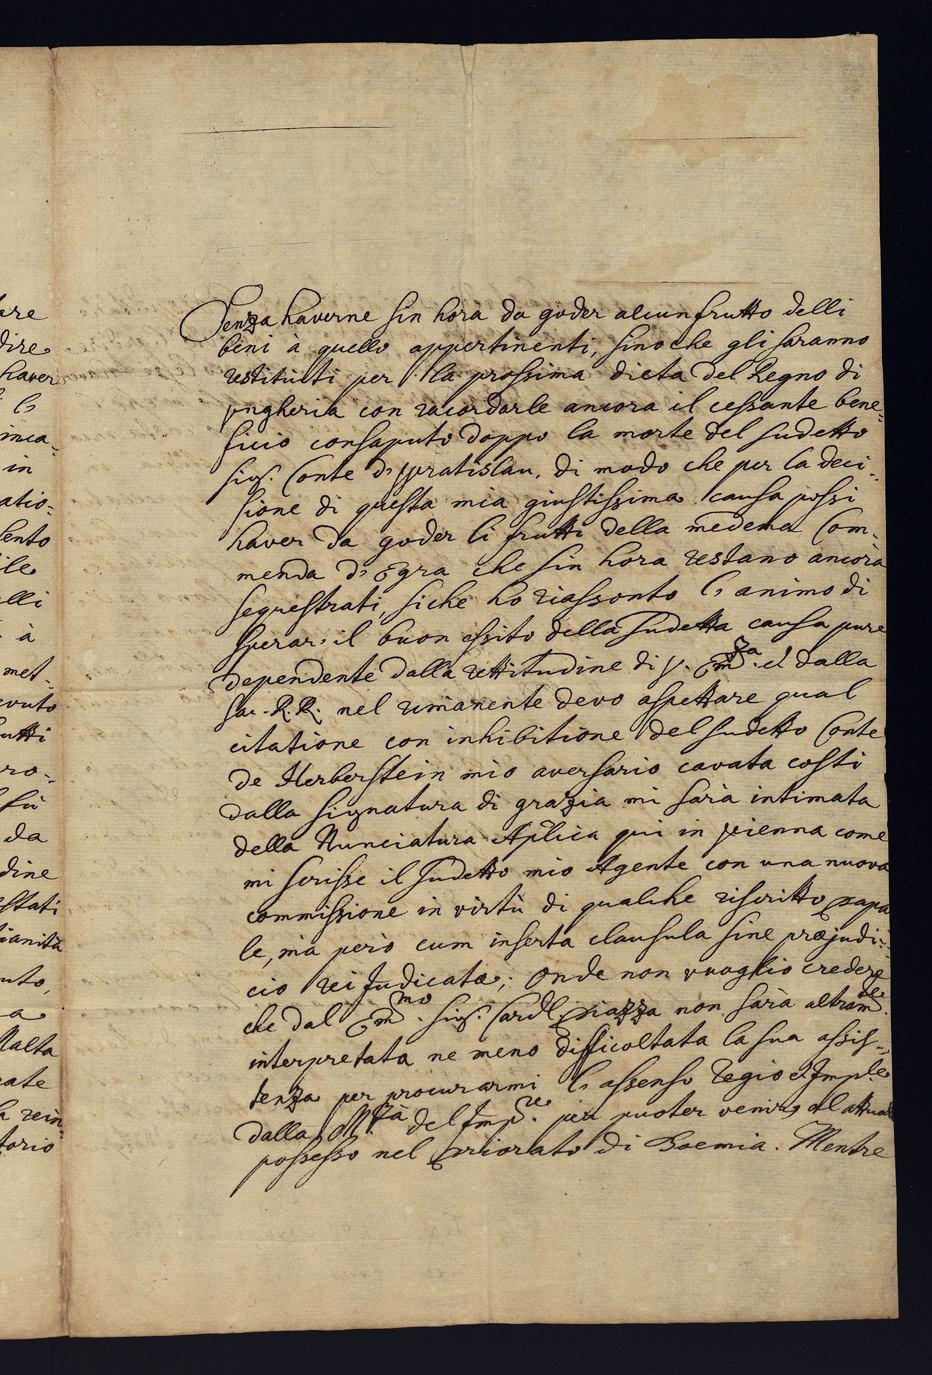 Senza haverne sin hora da goder alcun frutto delli
beni à quello appertinenti, sinoche gli saranno
restituiti per la prossima dieta del Regno di
Vngheria con racordarle ancora il cessante bene-
ficio consaputo doppo la morte del sudetto
Sig.r Conte di Wratislau, di modo che per la deci-
sione di questa mia giustissima causa possi
haver da goder li frutti della medema Com-
menda d'Egra che sin hora restano ancora
sequestrati, siche ho riassonto l'animo di
sperar il buon essito della sudetta causa pure
dependente dalla rettitudine di V. Em.za et dalla
Sac. R. R. nel rimanente devo aspettare qual
citatione con inhibitione del sudetto Conte
de Herberstein mio aversario cavata costi
dalla signatura di grazia mi sarà intimata
della Nunciatura Aplica qui in Vienna come
mi scrisse il sudetto mio Agente con una nuova
commissione in virtù di qualche riscritto Papa
le, ma però cum inserta clausula sine præjudi-
cio rei Judicatæ; Onde non vuoglio credere
che dal Em.mo Sig.r Cardl Piazza non sarà altram.te
interpretata ne meno difficoltata la sua assis-
tenza per procurarmi l'assenso regio et Imp.le
dalla M.tà del Imp.re per puoter venire al attual
possesso nel Priorato di Boemia. Mentre
are
dire
haver
l'
in
atio-
ento
ile
elli
à
met-
evuto
utti
ro-
fù
da
dine
estati
uto,
a
Malta
cate
torio